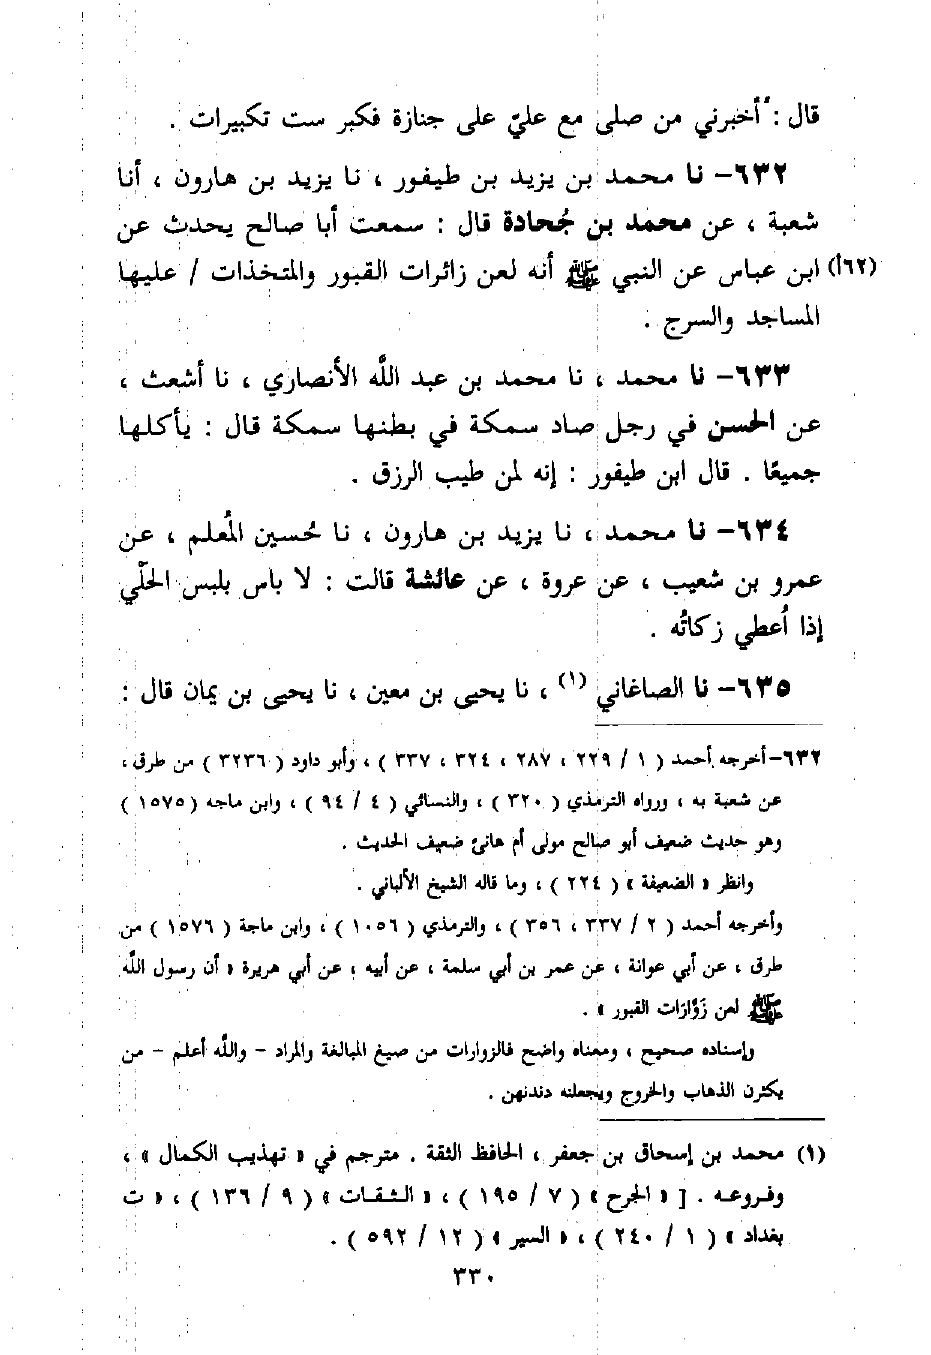 قال : أخبرني من صلى مع عليّ على جنازة فكبر ست تكبيرات .
٦٣٢- نا محمد بن يزيد بن طيفور ، نا يزيد بن هارون ، أنا
شعبة ، عن محمد بن جُحادة قال : سمعت أبا صالح يحدث عن
(٦٢أ) ابن عباس عن النبي ﷺ أنه لعن زائرات القبور والمتخذات / عليها
المساجد والسرج .
٦٣٣- نا محمد ، نا محمد بن عبد اللَّه الأنصاري ، نا أشعث ،
عن الحسن في رجل صاد سمكة في بطنها سمكة قال : يأكلها
جميعًا . قال ابن طيفور : إنه لمن طيب الرزق .
٦٣٤- نا محمد ، نا يزيد بن هارون ، نا حُسين المُعلم ، عن
عمرو بن شعيب ، عن عروة ، عن عائشة قالت : لا باس بلبس الحلّي
إذا أُعطي زكاتُه .
٦٣٥- نا الصاغاني (١) ، نا يحيى بن معين ، نا يحيى بن يمان قال :
٦٣٢- أخرجه أحمد ( ١ / ٢٢٩ ، ٢٨٧ ، ٣٢٤ ، ٣٣٧ ) ، وأبو داود ( ٣٢٣٦ ) من طرق ،
عن شعبة به ، ورواه الترمذي ( ٣٢٠ ) ، والنسائي ( ٤ / ٩٤ ) ، وابن ماجه ( ١٥٧٥ )
وهو حديث ضعيف أبو صالح مولى أم هانئ ضعيف الحديث .
وانظر « الضعيفة » ( ٢٢٤ ) ، وما قاله الشيخ الألباني .
وأخرجه أحمد ( ٢ / ٣٣٧ ، ٣٥٦ ) ، والترمذي ( ١٠٥٦ ) ، وابن ماجة ( ١٥٧٦ ) من
طرق ، عن أبي عوانة ، عن عمر بن أبي سلمة ، عن أبيه ، عن أبي هريرة « أن رسول اللَّه
ﷺ لعن زَوَّارَات القبور » .
وإسناده صحيح ، ومعناه واضح فالزوارات من صيغ المبالغة والمراد – واللَّه أعلم – من
يكثرن الذهاب والخروج ويجعلنه دندنهن .
(١) محمد بن إسحاق بن جعفر ، الحافظ الثقة . مترجم في « تهذيب الكمال » ،
وفروعه . [ « الجرح » ( ٧ / ١٩٥ ) ، « الثقات » ( ٩ / ١٣٦ ) ، « ت
بغداد » ( ١ / ٢٤٠ ) ، « السير » ( ١٢ / ٥٩٢ ) .
٣٣٠